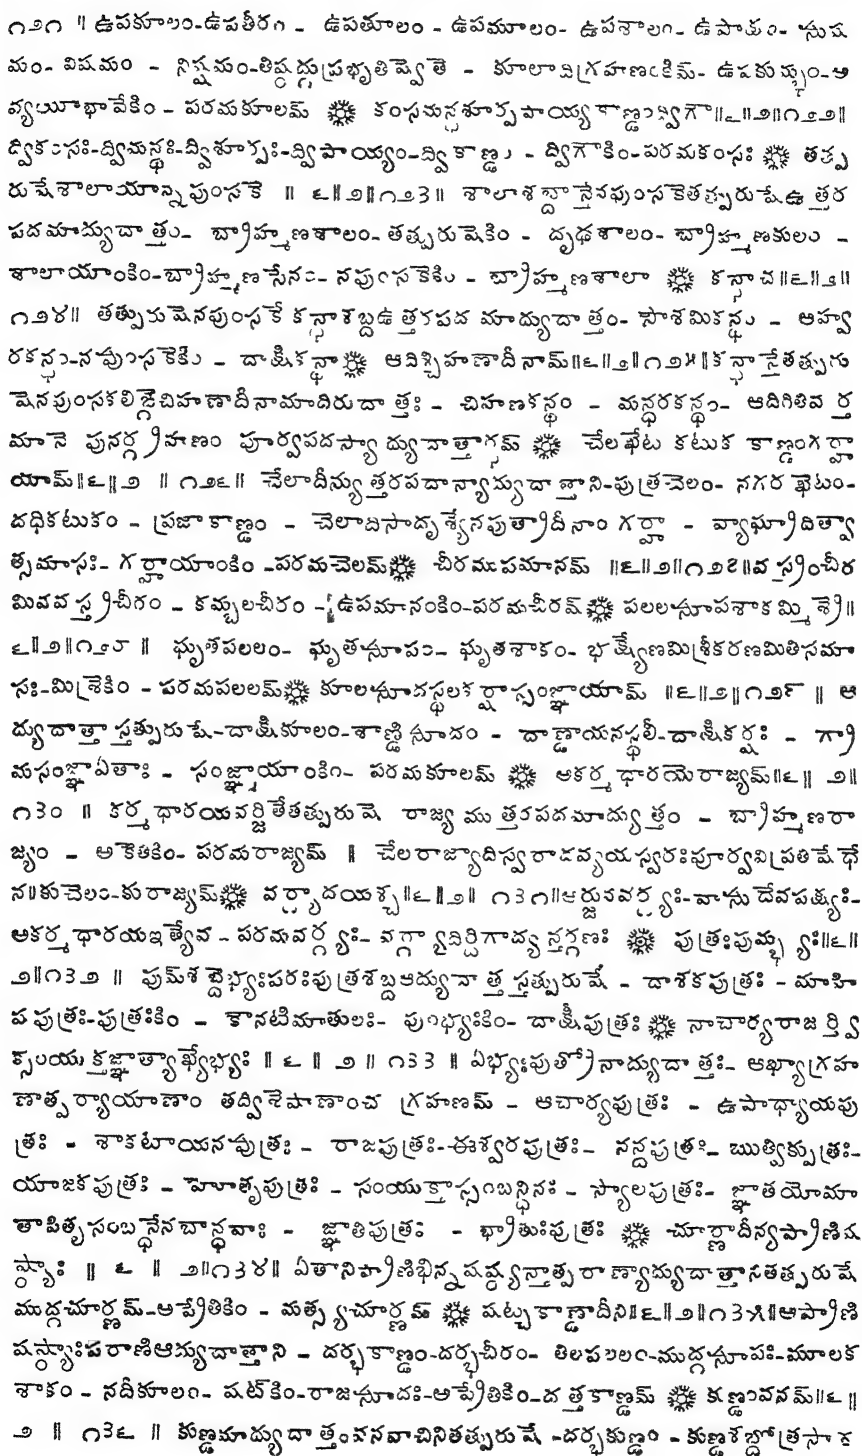 ౧౨౧ ॥ ఉపకూలం-ఉపతీరం - ఉపతూలం - ఉపమూలం- ఉపశాలం- ఉపాక్షం- సుష
మం- విషమం - నిష్షమం-తిష్ఠద్గుప్రభృతిష్వేతె - కూలాదిగ్రహణంకిమ్- ఉపకుమ్భం-అ
వ్యయీభావేకిం - పరమకూలమ్ ❋ కంసమన్థశూర్పపాయ్యకాణ్డంద్విగౌ॥౬॥౨॥౧౨౨॥
ద్వికంసః-ద్విమన్థః-ద్విశూర్పః-ద్విపాయ్యం-ద్వికాణ్డం - ద్విగౌకిం-పరమకంసః ❋ తత్పు
రుషేశాలాయాన్నపుంసకే ॥ ౬॥౨॥౧౨౩॥ శాలాశబ్దాన్తేనపుంసకెతత్పురుషేఉత్తర
పదమాద్యుదాత్తం- బ్రాహ్మణశాలం-తత్పురుషెకిం - దృఢశాలం- బ్రాహ్మణకులం -
శాలాయాంకిం-బ్రాహ్మణసేనం- నపుంసకెకిం - బ్రాహ్మణశాలా ❋ కన్థాచ॥౬॥౨॥
౧౨౪॥ తత్పురుషెనపుంసకే కన్థాశబ్దఉత్తరపద మాద్యుదాత్తం- సౌశమికన్థం - ఆహ్వ
రకన్థం-నపుంసకెకిం - దాక్షికన్థా❋ ఆదిశ్చిహణాదీనామ్॥౬॥౨॥౧౨౫॥కన్థాన్తేతత్పురు
షెనపుంసకలిఙ్గెచిహణాదీనామాదిరుదాత్తః - చిహణకన్థం - మన్దరకన్థం- ఆదిరితివర్త
మానె పునర్గ్రహణం పూర్వపదస్యాద్యుదాత్తార్థమ్ ❋ చేలఖేట కటుక కాణ్డంగర్హా
యామ్॥౬॥౨ ॥ ౧౨౬॥ చేలాదీన్యుత్తరపదాన్యాద్యుదాత్తాని-పుత్రచెలం- నగరఖెటం-
దధికటుకం - ప్రజాకాణ్డం - చెలాదిసాదృశ్యేనపుత్రాదీనాం గర్హా - వ్యాఘ్రాదిత్వా
త్సమాసః- గర్హాయాంకిం -పరమచెలమ్❋ చీరముపమానమ్ ॥౬॥౨॥౧౨౭॥వస్త్రంచీర
మివవస్త్రచీరం - కమ్బలచీరం - ఉపమానంకిం-పరమచీరమ్❋ పలలసూపశాకమ్మిశ్రె॥
౬॥౨॥౧౨౮ ॥ ఘృతపలలం- ఘృతసూపం- ఘృతశాకం- భక్ష్యేణమిశ్రీకరణమితిసమా
సః-మిశ్రెకిం - పరమపలలమ్❋ కూలసూదస్థలకర్షాస్సంజ్ఞాయామ్ ॥౬॥౨॥౧౨౯ ॥ ఆ
ద్యుదాత్తాస్తత్పురుషే-దాక్షికూలం-శాణ్డిసూదం - దాణ్డాయనస్థలీ-దాక్షికర్షః - గ్రా
మసంజ్ఞాఏతాః - సంజ్ఞాయాంకిం- పరమకూలమ్ ❋ అకర్మధారయెరాజ్యమ్॥౬॥ ౨॥
౧౩౦ ॥ కర్మధారయవర్జితేతత్పురుషె రాజ్యముత్తరపదమాద్యుత్తం - బ్రాహ్మణరా
జ్యం - అకెతికిం- పరమరాజ్యమ్ ॥ చేలరాజ్యాదిస్వరాదవ్యయస్వరఃపూర్వవిప్రతిషేధే
న॥కుచెలం-కురాజ్యమ్❋ వర్గ్యాదయశ్చ॥౬॥౨॥ ౧౩౧॥అర్జునవర్గ్యః-వాసుదేవపక్ష్యః-
అకర్మధారయఇత్యేవ - పరమవర్గ్యః- వర్గ్యాదిర్దిగాద్యన్తర్గణః ❋ పుత్రఃపుమ్భ్యః॥౬॥
౨॥౧౩౨ ॥ పుమ్శబ్దెభ్యఃపరఃపుత్రశబ్దఆద్యుదాత్తస్తత్పురుషే - దాశకపుత్రః - మాహి
షపుత్రః-పుత్రఃకిం - కౌనటిమాతులః- పుంభ్యఃకిం- దాక్షీపుత్రః ❋ నాచార్యరాజర్త్వి
క్సంయుక్తజ్ఞాత్యాఖ్యేభ్యః ॥ ౬ ॥ ౨ ॥ ౧౩౩ ॥ ఏభ్యఃపుత్రోనాద్యుదాత్తః- ఆఖ్యాగ్రహ
ణాత్పర్యాయాణాం తద్విశేషాణాంచ గ్రహణమ్ - ఆచార్యపుత్రః - ఉపాధ్యాయపు
త్రః - శాకటాయనపుత్రః - రాజపుత్రః-ఈశ్వరపుత్రః- నన్దపుత్రః- ఋత్విక్పుత్రః-
యాజకపుత్రః - హోతృపుత్రః - సంయుక్తాస్సంబన్ధినః - స్యాలపుత్రః- జ్ఞాతయోమా
తాపితృసంబన్ధేనబాన్ధవాః - జ్ఞాతిపుత్రః - భ్రాతుఃపుత్రః ❋ చూర్ణాదీన్యప్రాణిష
ష్ఠ్యాః ॥ ౬ ॥ ౨॥౧౩౪॥ ఏతానిప్రాణిభిన్నషష్ఠ్యన్తాత్పరాణ్యాద్యుదాత్తానితత్పురుషే
ముద్గచూర్ణమ్-అప్రేతికిం - మత్స్యచూర్ణమ్ ❋ షట్చకాణ్డాదీని॥౬॥౨॥౧౩౫॥అప్రాణి
షష్ఠ్యాఃపరాణిఆద్యుదాత్తాని - దర్భకాణ్డం-దర్భచీరం- తిలపలలం-ముద్గసూపః-మూలక
శాకం - నదీకూలం- షట్కిం-రాజసూదః-అప్రేతికిం-దత్తకాణ్డమ్ ❋ కుణ్డంవనమ్॥౬॥
౨ ॥ ౧౩౬ ॥ కుణ్డమాద్యుదాత్తంవనవాచినితత్పురుషే -దర్భకుణ్డం - కుణ్డశబ్దోత్రసాదృ